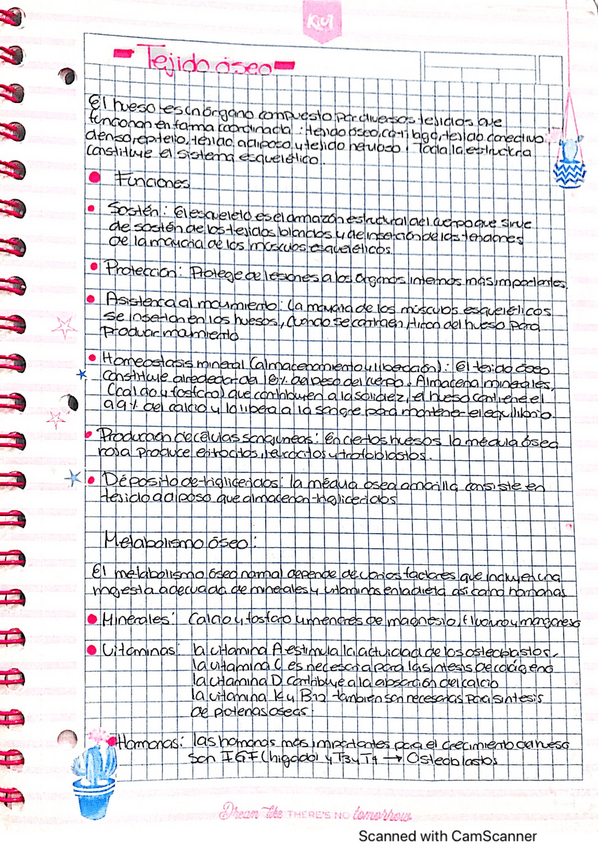 KIUT
Tejido óseo
El hueso es un órgano compuesto por diversos tejidos que
funcionan en forma coordinada : tejido óseo, cartílago, tejido conectivo
denso, epitelio, tejido adiposo y tejido nervioso. Toda la estructura
constituye el sistema esquelético.
Funciones
Sostén: El esqueleto es el armazón estructural del cuerpo que sirve
de sostén de los tejidos blandos y de inserción de los tendones
de la mayoría de los músculos esqueléticos.
Protección: Protege de lesiones a los órganos internos más importantes.
Asistencia al movimiento: La mayoría de los músculos esqueléticos
se insertan en los huesos, cuando se contraen tiran del hueso para
producir movimiento
Homeostasis mineral (almacenamiento y liberación): El tejido óseo
constituye alrededor de 18% del peso del cuerpo. Almacena minerales,
(calcio y fosforo) que contribuyen a la solidez, el hueso contiene el
99% del calcio y lo libera a la sangre para mantener el equilibrio
Producción de células sanguíneas: En ciertos huesos la médula ósea
roja produce eritrocitos, leucocitos y trofoblastos.
Déposito de trigliceridos: la médua ósea amarilla consiste en
tejido adiposo que almacenan trigliceridos
Metabolismo óseo:
El metabolismo óseo normal depende de varios factores que incluyen una
ingesta adecuada de minerales y vitaminas en la dieta así como hormonas.
Minerales: Calcio y fosforo y menores de magnesio, fluoruro y manganeso
Vitaminas: la vitamina A estimula la actividad de los osteoblastos.
la vitamina C es necesaria para la síntesis de colágeno
la vitamina D contribuye a la absorción del calcio
la vitamina K y B12 también son necesarias para síntesis
de proteínas óseas.
Hormonas: las hormonas más importantes para el crecimiento de hueso
son IGF (higado) y T3 y T4 → Osteoblastos
Dream like THERE'S NO tomorrow
Scanned with CamScanner